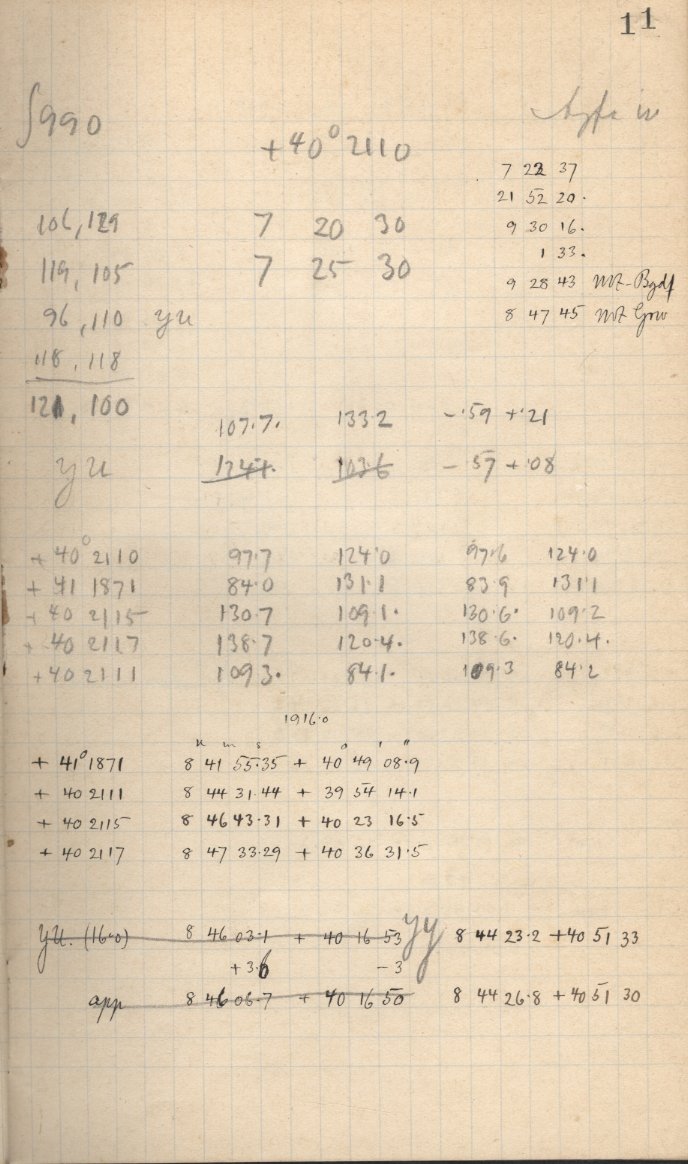 11
∫990
+40° 2110
7 22 37
21 52 20.
106,129 7 20 30
9 30 16.
1 33.
119, 105 7 25 30
9 28 43
96,110 yu
8 47 45
118, 118
121, 100
107.7. 133.2 -.59 +.21
yu 124.1. 103.6 -.57 +.08
+ 40° 2110 97.7 124.0 97.6 124.0
+ 41 1871 84.0 131.1 83.9 131.1
+ 40 2115 130.7 109.1. 130.6. 109.2
+ 40 2117 138.7 120.4. 138.6. 120.4.
+ 40 2111 109.3. 84.1. 109.3 84.2
1916.0
h m s ° ' "
+ 41° 1871 8 41 55.35 + 40 49 08.9
+ 40 2111 8 44 31.44 + 39 54 14.1
+ 40 2115 8 46 43.31 + 40 23 16.5
+ 40 2117 8 47 33.29 + 40 36 31.5
yu. (16.0) 8 46 03.1 + 40 16 53 yy 8 44 23.2 +40 51 33
+3.6 -3
app 8 46 06.7 + 40 16 50 8 44 26.8 +40 51 30